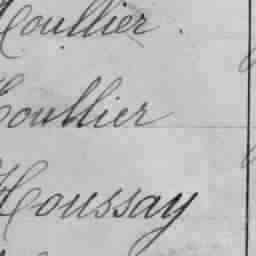 Houllier.
Houllier
Houssay